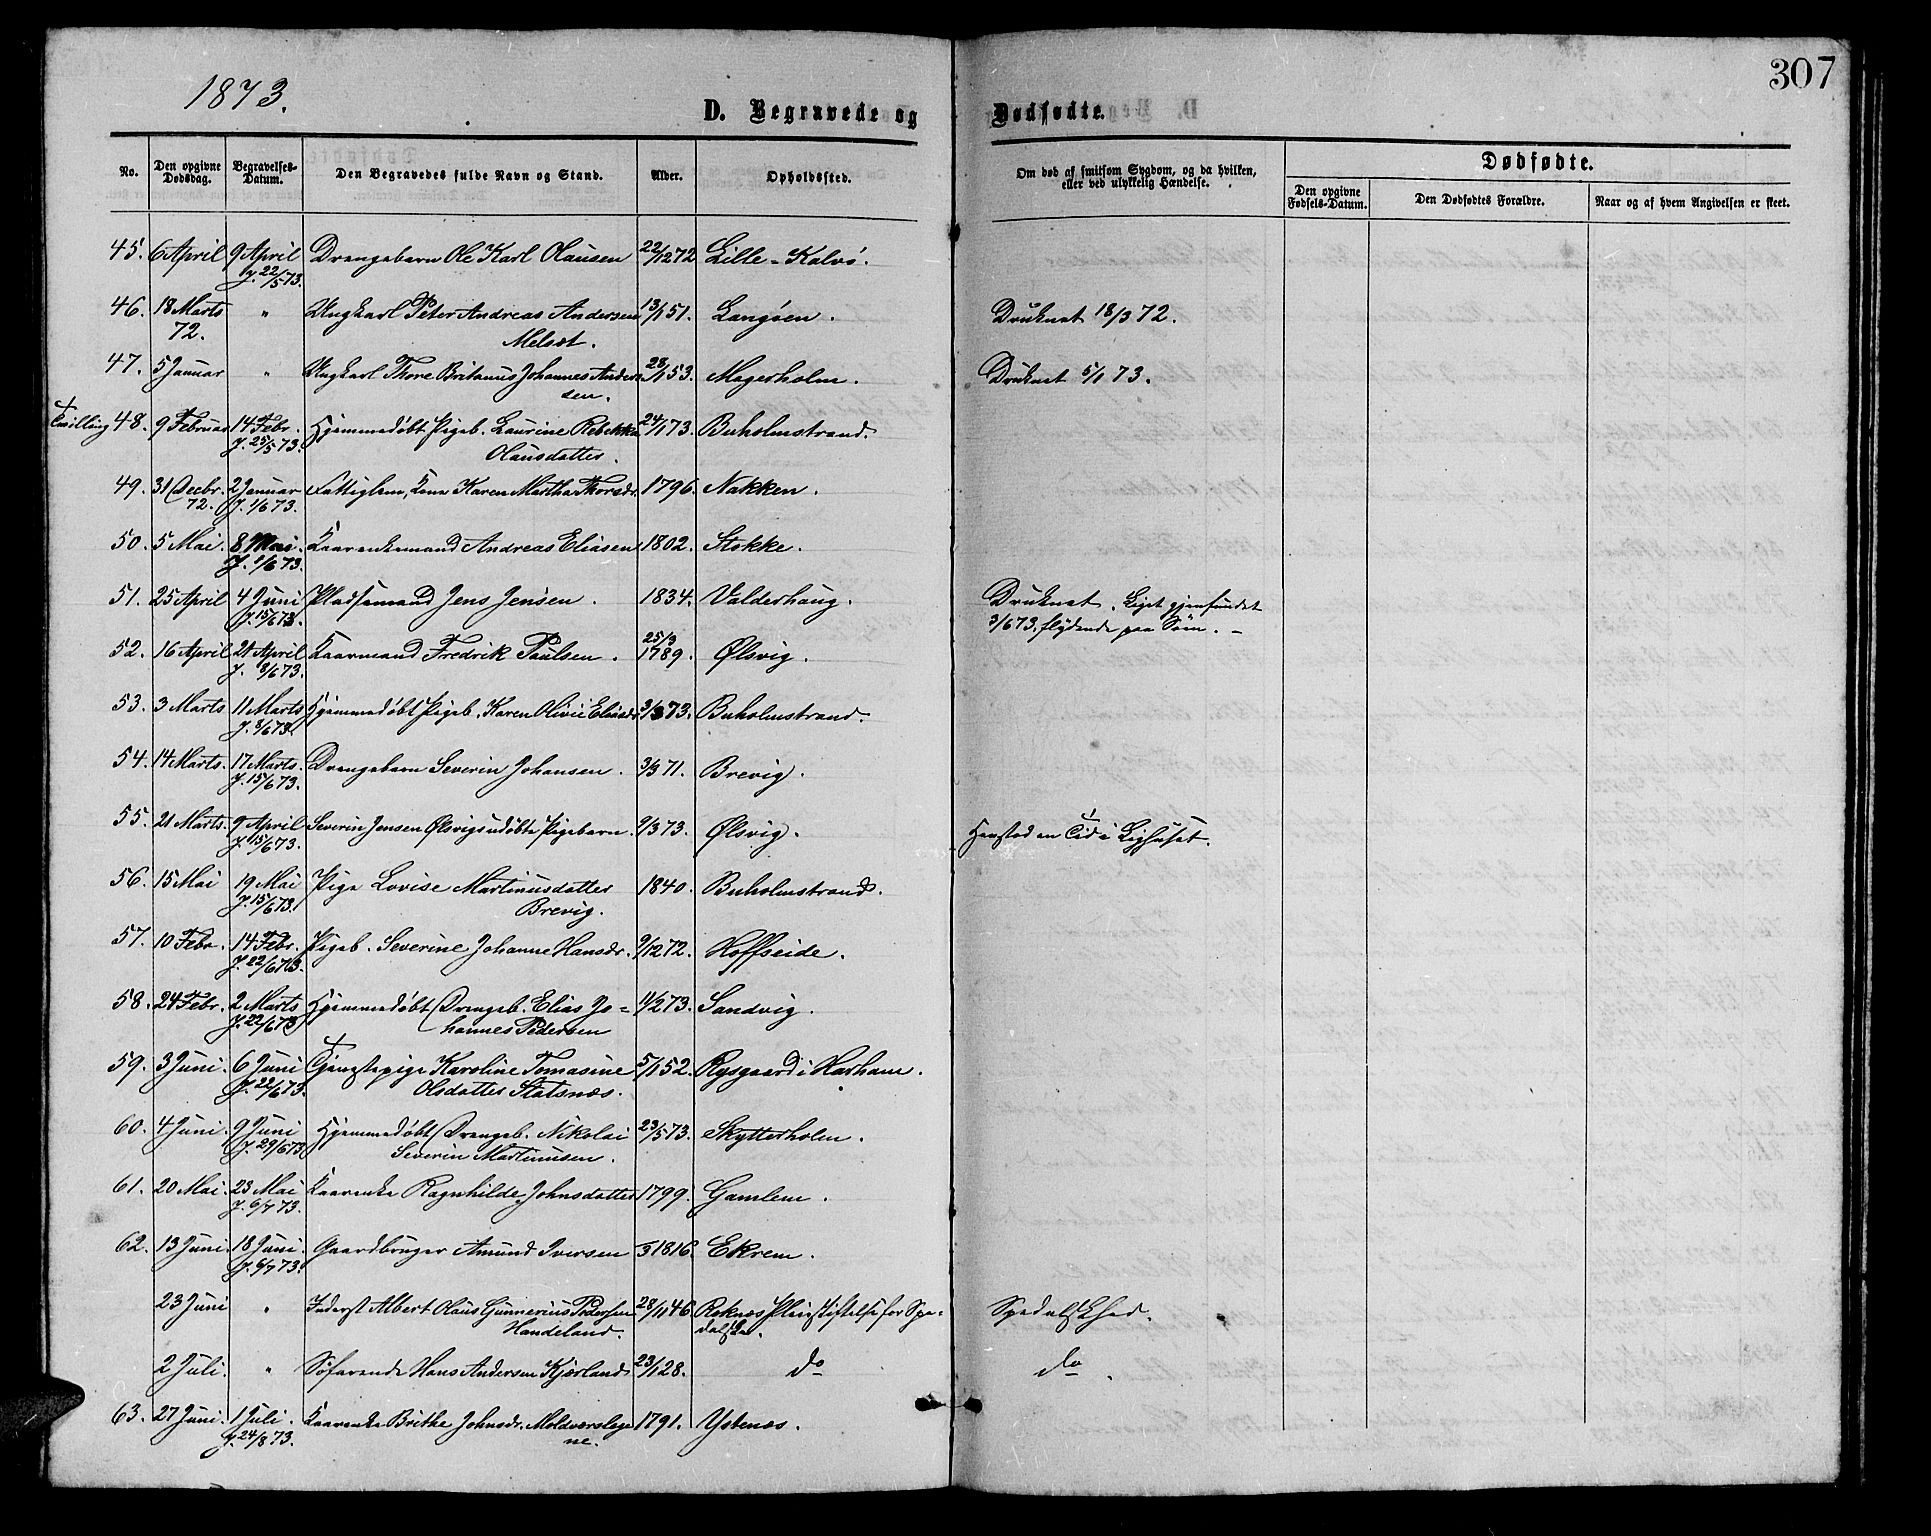 307
1873.
D. Begravede og Dødfødte.
No. Den opgivne Dødsdag. Begravelses-Datum. Den Begravedes fulde Navn og Stand. Alder. Opholdssted. Om død af smitsom Sygdom, og da hvilken, eller ved ulykkelig Hændelse. Dødfødte.
Den opgivne Fødsels-Datum. Den Dødfødtes Forældre. Naar og af hvem Angivelsen er skeet.
45. 6 April 9 April Drengebarn Ole Karl Olausen 22/1272 Lille-Kalvö.
J. 22/5 73.
46. 18 Marts " Ungkarl Peter Andreas Andersen 13/1 51. Langøen. Druknet 18/3 72.
72. Melsæt.
47. 5 Januar " Ungkarl Thore Britanus Johannes Ander= 28/1 53. Magerholm. Druknet 5/1 73.
sen.
Tvilling 48. 9 Februar 14 Febr. Hjemmedøbt Pigeb. Laurine Rebekka 24/1 73. Buholmstrand.
J. 25/5 73. Olausdatter.
49. 31 Decbr. 2 Januar Fattiglem, Enke Karen Martha Thorsdr. 1796. Nakken.
72. J. 1/6 73.
50. 5 Mai. 8 Mai. Kaarenkemand Andreas Eliasen 1802. Stokke.
J. 1/6 73.
51. 25 April 4 Juni Pladsemand Jens Jensen. 1834. Valderhaug. Druknet. Liget gjenfundet
J. 15/6 73. 3/6 73. flydende paa Søen. -
52. 16 April 21 April Kaarmand Fredrik Paulsen. 25/3 1789. Ølsvig.
J. 8/6 73.
53. 3 Marts 11 Marts Hjemmedøbt Pigeb. Karen Olivie Eliasdr. 3/3 73. Buholmstrand.
J. 8/6 73.
54. 14 Marts. 17 Marts. Drengebarn Severin Johansen. 3/3 71. Brevig.
J. 15/6 73.
55. 21 Marts. 9 April Severin Jensen Ølsvigs udöbte Pigebarn. 9/3 73. Ølsvig. Henstod en Tid i Lighuset.
J. 15/6 73.
56. 15 Mai 19 Mai Pige Lovise Martinusdatter 1840. Buholmstrand.
J. 15/6 73. Brevig.
57. 10 Febr. 14 Febr. Pigeb. Severine Johanne Hansdr. 9/12 72. Hoffseide.
J. 22/6 73.
58. 24 Febr. 2 Marts Hjemmedøbt Drengeb. Elias Jo= 11/2 73. Sandvig.
J. 22/6 73 hannes Pedersen
59. 3 Juni. 6 Juni Tjenestepige Karoline Tomasine 5/1 52. Rysgaard i Harham.
J. 22/6 73. Olsdatter Statsnæs.
60. 4 Juni. 9 Juni Hjemmedøbt Drengeb. Nikolai 23/5 73. Skytterholm.
J. 29/6 73 Severin Martinusen.
61. 20 Mai. 23 Mai Kaarenke Ragnhilde Johnsdatter 1799. Gamlem.
J. 6/7 73.
62. 13 Juni. 18 Juni. Gaardbruger Amund Iversen 1816. Ekrem.
J. 6/7 73.
23 Juni " Inderst Albert Olaus Gunnerius Pedersen 28/11 46. Reknæs Pleiestiftelse for Spe= Spedalskhed.
Handeland. dalske.
2 Juli. " Søfarende Hans Andersen Kjørland 23/1 28. do do.
63. 27 Juni. 1 Juli. Kaarenke Brithe Johnsdr. Moldværslege 1791. Ystenæs.
J. 24/8 73. ne.